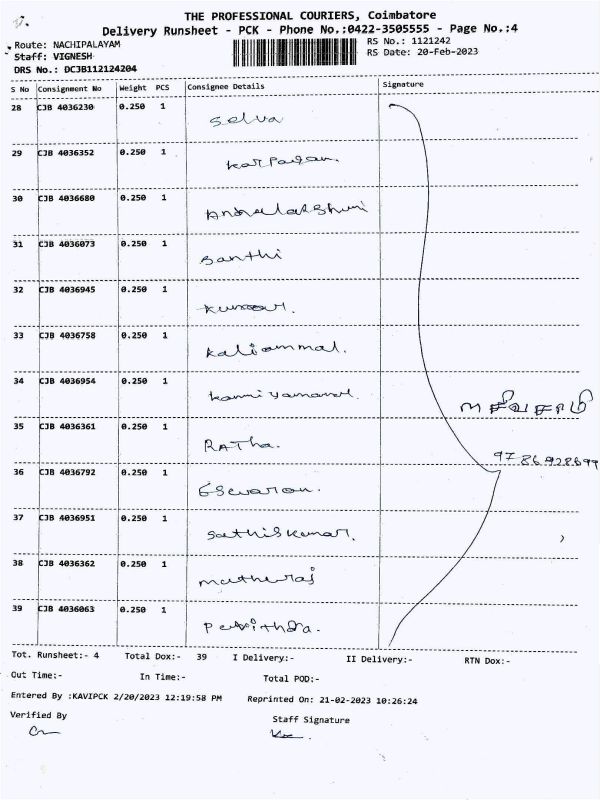 THE PROFESSIONAL COURIERS, Coimbatore
Delivery Runsheet - PCK - Phone No.:0422-3505555 - Page No.:4
Route: NACHIPALAYAM
RS No.: 1121242
Staff: VIGNESH
RS Date: 20-Feb-2023
DRS No.: DCJB112124204
S No Consignment No Weight PCS Consignee Details Signature
28 CJB 4036230 0.250 1 Selva
29 CJB 4036352 0.250 1 Karpagam.
30 CJB 4036680 0.250 1
31 CJB 4036073 0.250 1 Santhi
32 CJB 4036945 0.250 1 Kumar.
33 CJB 4036758 0.250 1 Kaliammal.
34 CJB 4036954 0.250 1
35 CJB 4036361 0.250 1 RATha.
36 CJB 4036792 0.250 1 Eswaran.
9786928699
37 CJB 4036951 0.250 1 Sathiskumar.
38 CJB 4036362 0.250 1 Muthuraj
39 CJB 4036063 0.250 1 Pavithra.
Tot. Runsheet:- 4 Total Dox:- 39 I Delivery:- II Delivery:- RTN Dox:-
Out Time:- In Time:- Total POD:-
Entered By :KAVIPCK 2/20/2023 12:19:58 PM Reprinted On: 21-02-2023 10:26:24
Verified By Staff Signature